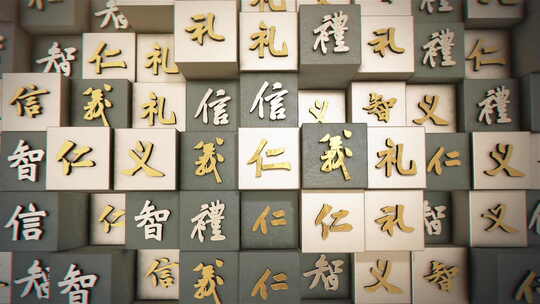 礼 礼 禮
智 仁 礼 礼 禮 礼 禮 仁
信 義 礼 信 信 义 智 义 禮
智 仁 义 義 仁 義 礼 仁 义
信 仁 智 禮 仁 仁 礼 智 义
智 智 信 義 仁 智 义 信 信